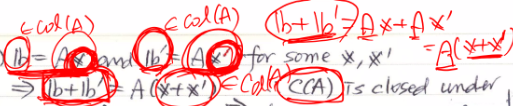 ∈ Col(A) ∈ Col(A) 𝕓+𝕓' = A𝕩+A𝕩'
𝕓 = A𝕩 and 𝕓' = A𝕩' for some 𝕩, 𝕩' = A(𝕩+𝕩')
⇒ 𝕓+𝕓' = A(𝕩+𝕩') ∈ Col(A) C(A) is closed under